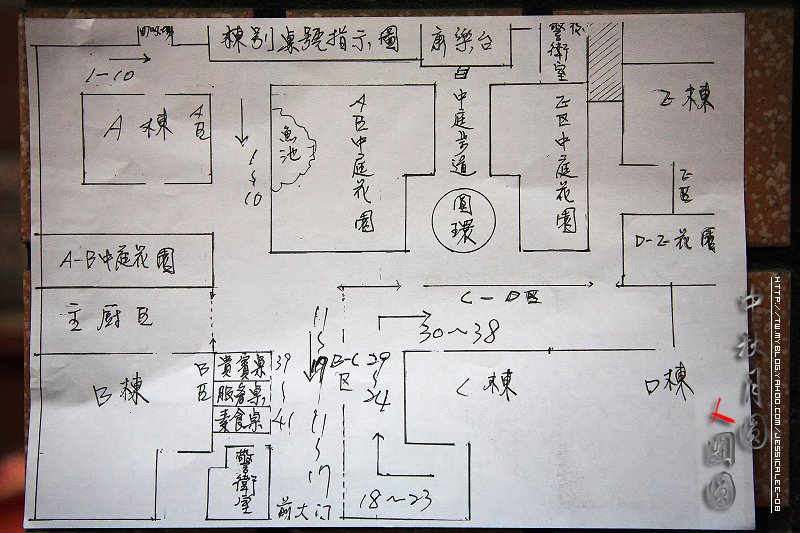 棟別桌號指示圖
康樂台
後
警衛室
1-10
A棟
A区
1~10
魚池
A区中庭花園
白
中庭步道
圓環
E区中庭花園
E棟
E区
D-E花園
A-B中庭花園
主厨区
C-D区
30~38
B棟
B区
貴賓桌
服務桌
素食桌
39~41
11~17
11~17
B-C区
29~24
C棟
D棟
警衛室
前大门
18~23
中秋月圓
人團圓
HTTP://TW.MYBLOG.YAHOO.COM/JESSICALEE-08